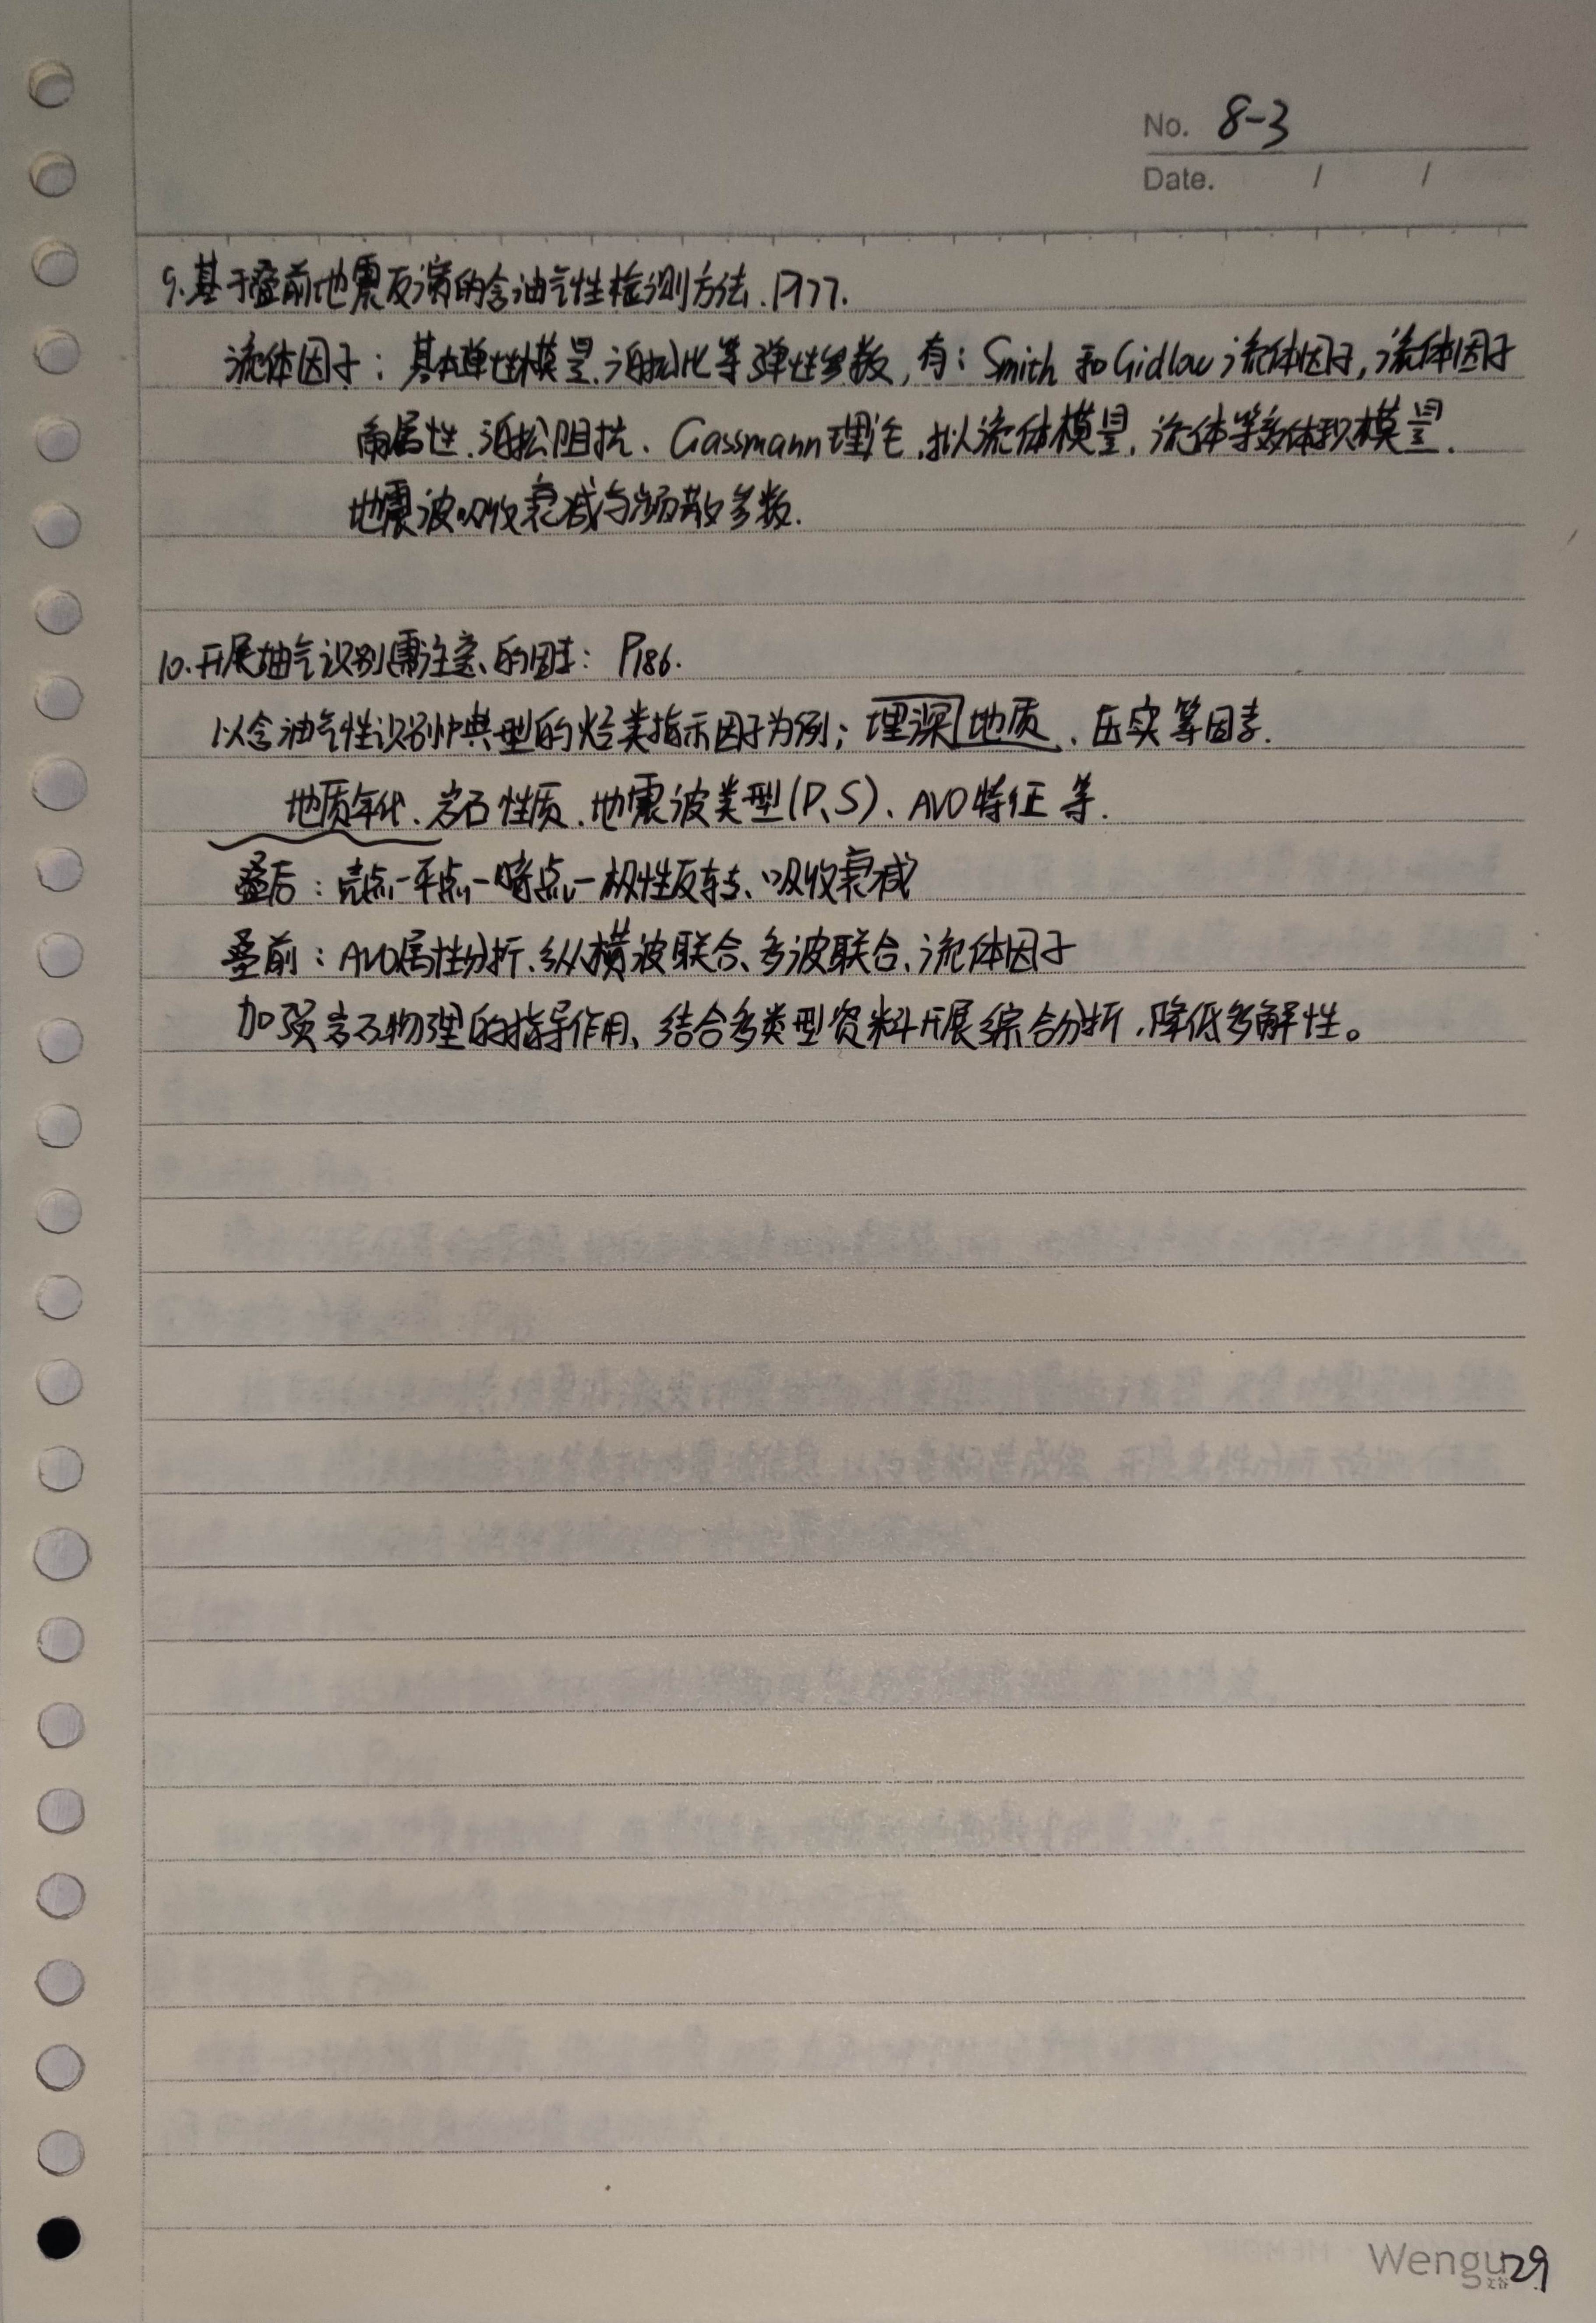 No. 8-3
Date. / /
9.基于叠前地震反演的含油气性检测方法. P177.
流体因子：基本弹性模量、泊松比等弹性参数,有：Smith 和 Gidlow 流体因子,流体因子
角属性、泊松阻抗、Gassmann理论,拟流体模量,流体等效体积模量.
地震波吸收衰减与频散参数.
10.开展油气识别需注意的因素： P186.
以含油气性识别中典型的烃类指示因子为例；埋深地质、压实等因素.
地质年代、岩石性质、地震波类型(P、S)、AVO特征等.
叠后：亮点-平点-暗点-极性反转、吸收衰减
叠前：AVO属性分析、纵横波联合、多波联合、流体因子
加强岩石物理的指导作用、结合多类型资料开展综合分析,降低多解性。
Wengu
29